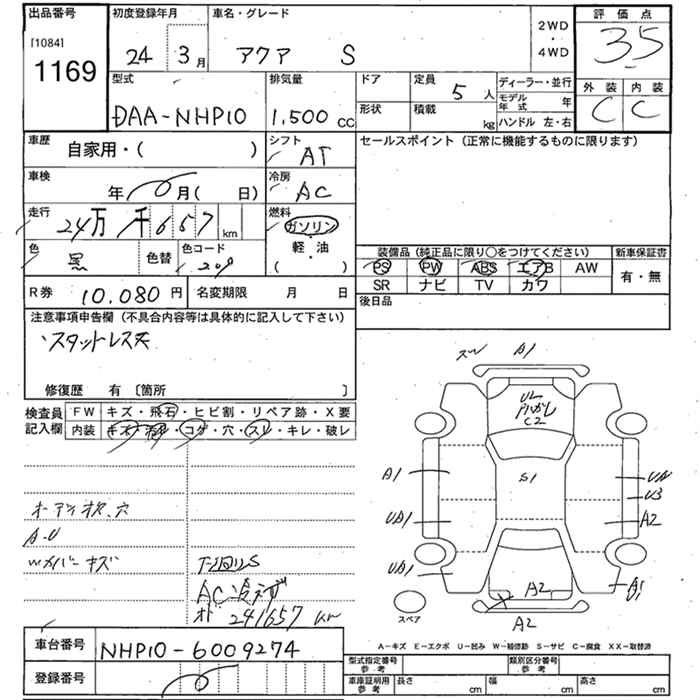 出品番号
[1084]
1169
初度登録年月
24 3月
車名・グレード
アクア S
2WD
・
4WD
評価点
3.5
外装 内装
C C
型式
DAA-NHP10
排気量
1,500 CC
ドア
形状
定員
5人
積載
kg
ディーラー・並行
モデル年式 年
ハンドル 左・右
車歴
自家用・( )
シフト
AT
セールスポイント (正常に機能するものに限ります)
車検
年 月( 日)
冷房
AC
走行
24万 千657 km
燃料
ガソリン
軽・油
( )
色
黒
色替
色コード
209
装備品 (純正品に限り○をつけてください)
新車保証書
PS PW ABS エアB AW
SR ナビ TV カワ
有・無
R券
10,080 円
名変期限 月 日
後日品
注意事項申告欄 (不具合内容等は具体的に記入して下さい)
スタットレス
修復歴 有 〔箇所 〕
検査員
記入欄
FW キズ・飛石・ヒビ割・リペア跡・X要
内装 キズ・ヨゴレ・コゲ・穴・スレ・キレ・破レ
A1
C2
S1
A1
UA1
UA1
UA
U3
A2
A1
A2
A2
スペア
穴
A-U
Wカバーキズ
下回りS
AC
241657 km
A-キズ E-エクボ U-凹み W-補修跡 S-サビ C-腐食 XX-取替済
車台番号
NHP10-6009274
登録番号
型式指定番号 参考
類別区分番号 参考
車庫証明用 参考
長さ cm
幅 cm
高さ cm